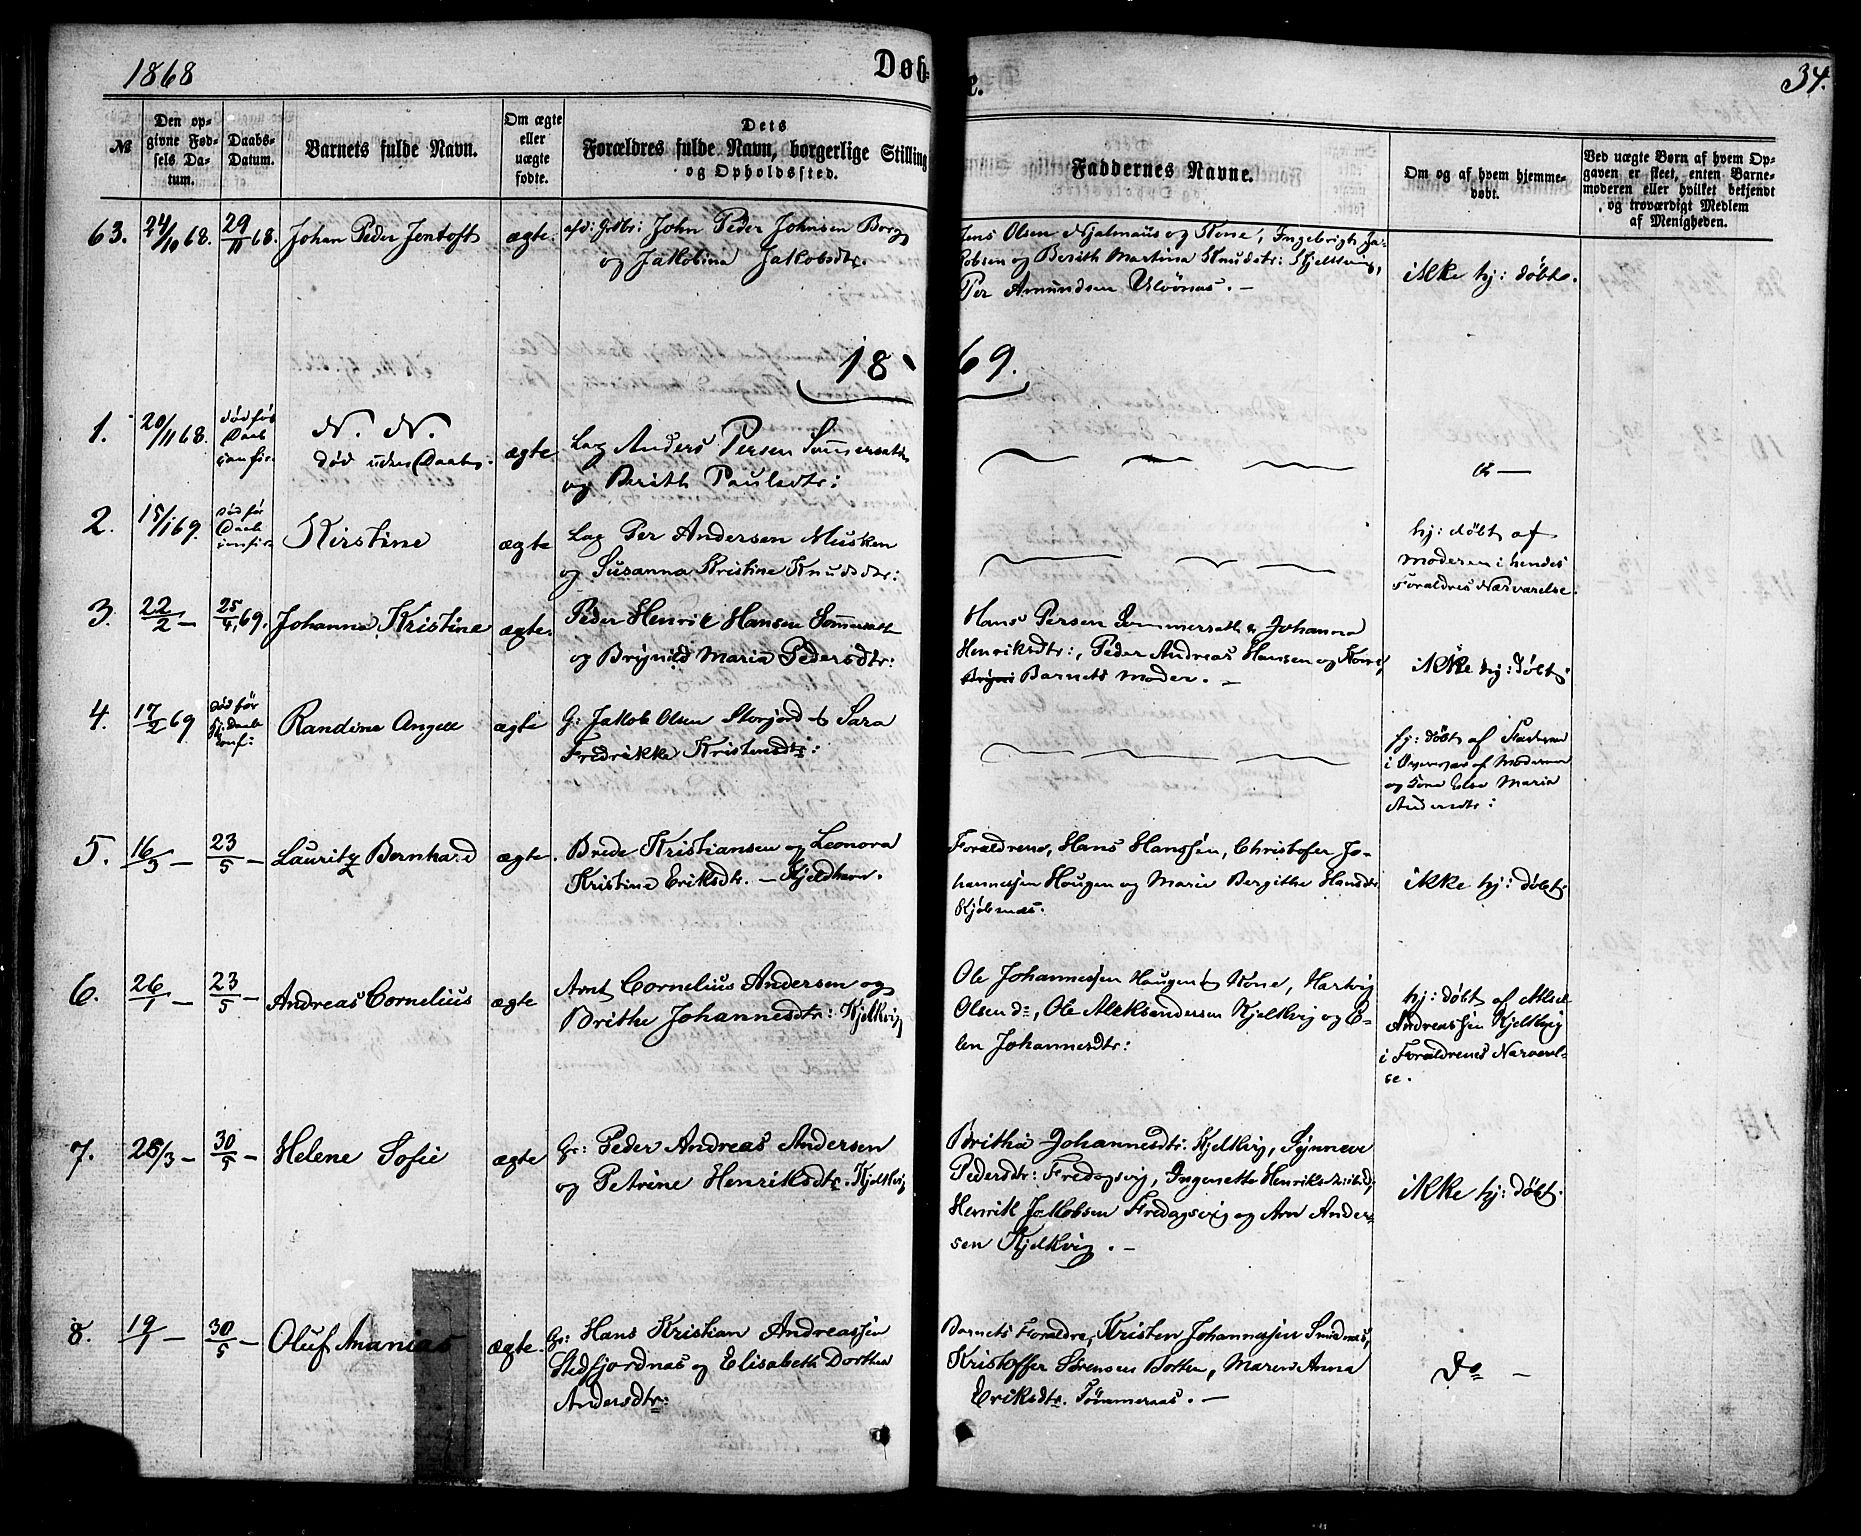 1868
Døb-
e.
34.
№
Den op-
givne Fød-
sels Da-
tum.
Daabs-
Datum.
Barnets fulde Navn.
Om ægte
eller
uægte
fødte.
Dets
Forældres fulde Navn, borgerlige Stilling
og Opholdssted.
Faddernes Navne.
Om og af hvem hjemme-
døbt.
Ved uægte Børn af hvem Op-
gaven er skeet, enten Barne-
moderen eller hvilket bekjendt
og troværdigt Medlem
af Menigheden.
63. 24/10 68. 29/11 68. Johan Peder Jentoft ægte. John Peder Johnsen Borg
og Jakobina Jakobsdtr.
Jens Olsen og Kone, Ingebrigt Ja-
kobsen og Berith Martina Knudsdtr:
Per Amundsen
ikke hj: døbt.
1869.
1. 20/11 68. død før
Daab
N. N.
død uden Daab. ægte Anders Persen
og Berith Paulsdtr:
2. 15/1 69. død før
Daab
Kirstine ægte Per Andersen Musken
og Susanna Kristine Knudsdtr:
hj: døbt af
moderen i hendes
Forældres Nærværelse.
3. 22/2 — 25/4 69. Johanna Kristine ægte. Peder Henrik Hansen
og Brynild Maria Pedersdtr:
Hans Persen Johanna
Henriksdtr:, Peder Andreas Hansen og Kone,
Barnets Moder. —
ikke hj: døbt:
4. 17/2 69 død før
Randine Angell ægte G: Jakob Olsen Storjord & Sara
Fredrikke Kristensdtr:
hj: døbt af
i af Moderen
og Else Maria
Andersdtr:
5. 16/3 — 23/5 — Lauritz Bernhard ægte. Brede Kristiansen og Leonora
Kristine Eriksdtr. —
Forældrene, Hans Hanssen, Christofer Jo-
hannessen Haugen og Marie Bergithe Hansdtr
Kjøbnæs.
ikke hj: døbt
6. 26/1 — 23/5 — Andreas Cornelius ægte Arnt Cornelius Andersen og
Brithe Johannesdtr: Kjelkvig
Ole Johannessen Haugen & Kone, Hartvig
Olsen do, Ole Aleksandersen Kjelkvig og E-
len Johannesdtr:
hj: døbt af
Andreassen Kjelkvig
i Forældrenes Nærværel-
se.
7. 25/3 — 30/5 — Helene Sofie ægte Gr: Peder Andreas Andersen
og Petrine Henriksdtr. Kjelkvig
Britha Johannesdtr: Kjelkvig, Synneve
Pedersdtr: Fredagsvig,
Henrik Jakobsen Fredagsvig og Arn Ander-
sen Kjelkvig. —
ikke hj: døbt.
8. 19/1 — 30/5 — Oluf Ananias ægte. Gr: Hans Kristian Andreassen
Stedfjordnæs og Elisabeth Dorthea
Andersdtr:
Barnets Forældre, Kristen Johannessen
Kristoffer Sørensen Botten, Maren Anna
Eriksdtr. Tømmeraas. —
Do —